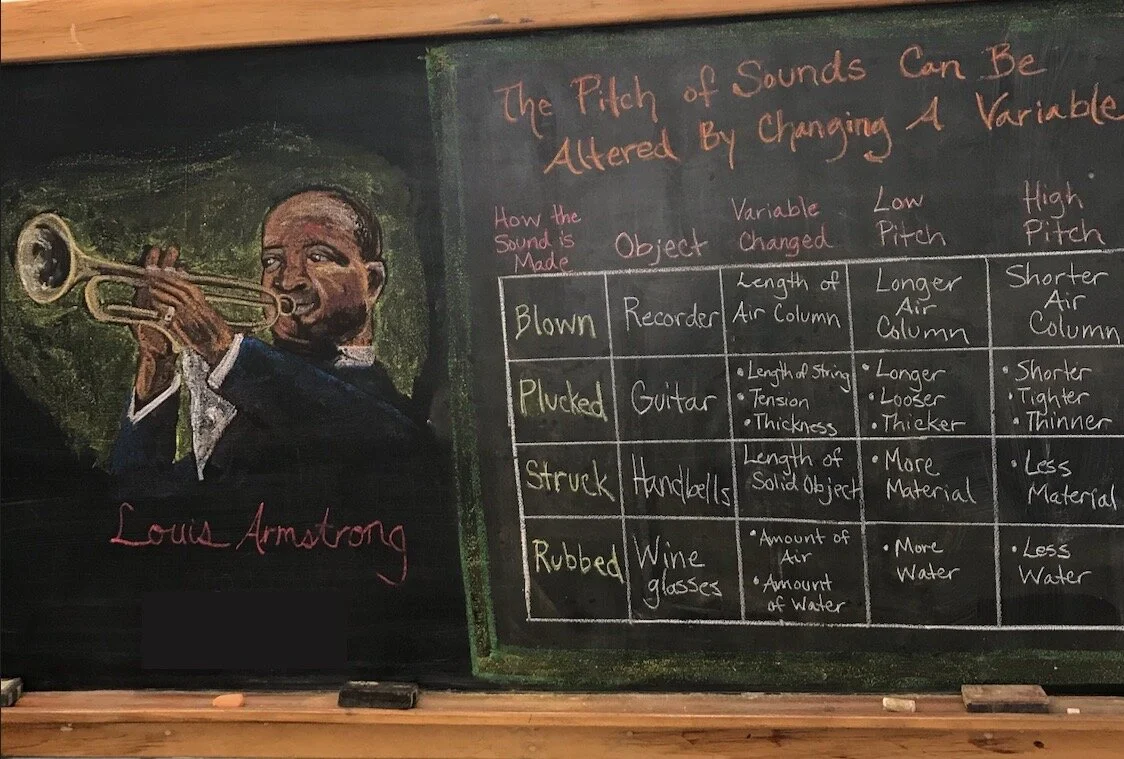 The Pitch of Sounds Can Be
Altered By Changing A Variable
How the
Sound is
Made
Object
Variable
Changed
Low
Pitch
High
Pitch
Blown
Recorder
Length of
Air Column
Longer
Air
Column
Shorter
Air
Column
Plucked
Guitar
• Length of String
• Tension
• Thickness
• Longer
• Looser
• Thicker
• Shorter
• Tighter
• Thinner
Struck
Handbells
Length of
Solid Object
• More
Material
• Less
Material
Rubbed
Wine
glasses
• Amount of
Air
• Amount
of Water
• More
Water
• Less
Water
Louis Armstrong